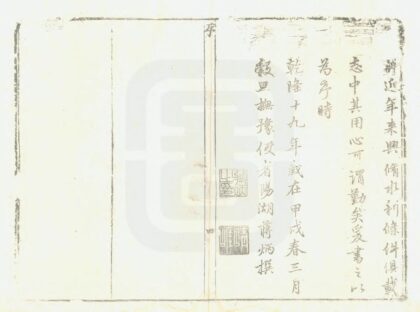 將近年來興脩水利條件俱載
志中其用心可謂勤矣爰書之以
為序時
乾隆十九年歲在甲戌春三月
穀旦撫豫使者陽湖蔣炳撰
序